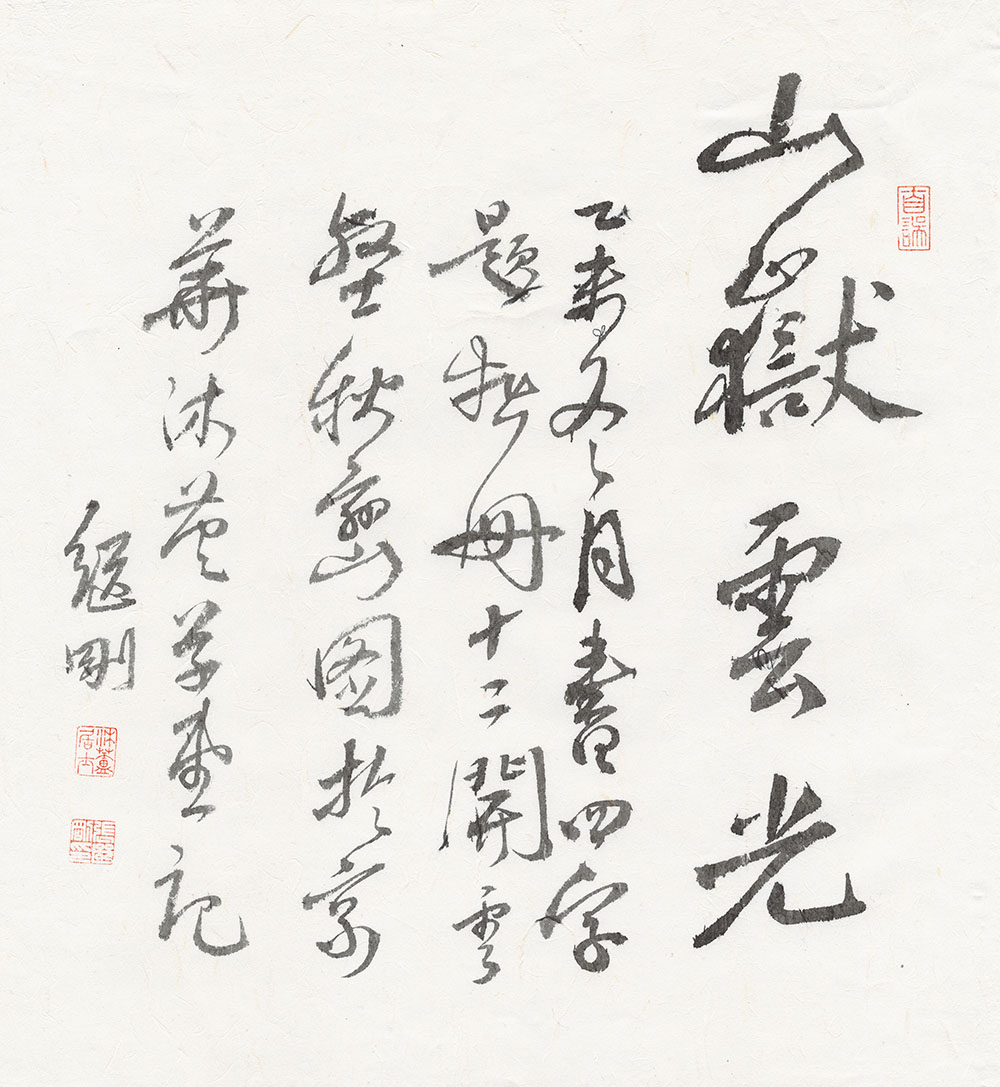 山嶽雲光
乙未冬月書四字
題拙冊十二開雲
壑秋巒圖於京
華沐芷草堂記
繼剛